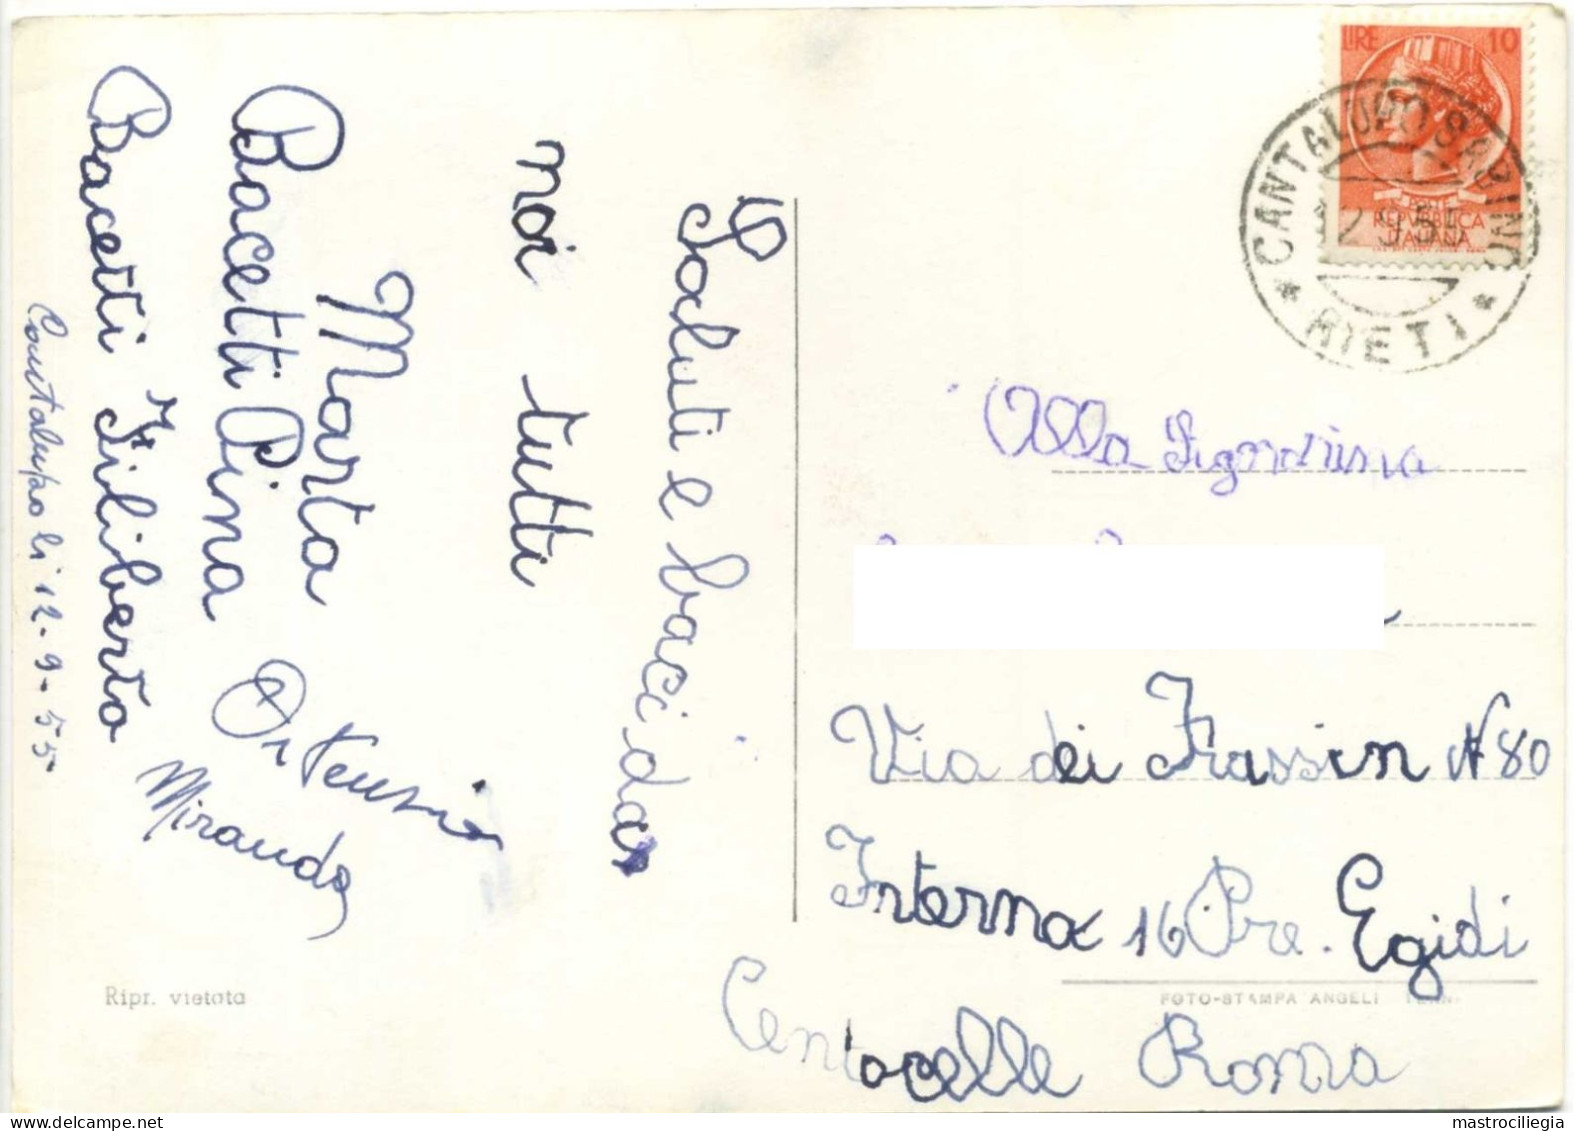 Saluti e baci da
noi tutti
Marta
Bacetti Pina
Ortensia
Bacetti Filiberto
Miranda
Cantalupo li 12-9-55
Ripr. vietata
LIRE 10
REPVBBLICA
ITALIANA
CANTALUPO SABINO
12 9 55
* RIETI *
Alla Signorina
Via dei Frassin N 80
Interna 16 Pre. Egidi
FOTO-STAMPA ANGELI TERNI
Centocelle Roma
mastrociliegia